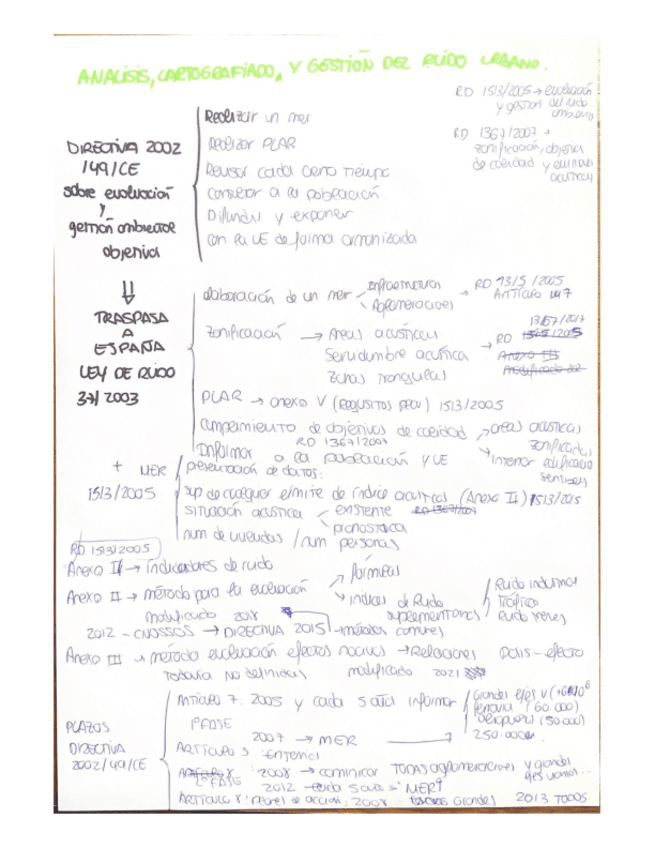 ANALISIS, CARTOGRAFIADO, Y GESTIÓN DEL RUIDO URBANO.
RD 1513/2005 → evaluación
y gestión del ruido
ambiental
RD 1367/2007 →
zonificación, objetivos
de calidad y emisiones
acusticas
DIRECTIVA 2002
/49/CE
sobre evaluación
y
gestión ambiental
objetiva
Realizar un mer
Realizar PLAR
Revisar cada cierto tiempo
Consultar a la población
Difundir y exponer
con la UE de forma armonizada
⇓
TRASPASA
A
ESPAÑA
LEY DE RUIDO
37/2003
elaboración de un mer
Infraestructuras
Aglomeraciones
→ RD 1513/2005
ARTÍCULO 7
Zonificación → Areas acústicas
Servidumbre acústica
Zonas tranquilas
→ RD
1367/2007
Anexo III
PLAR → anexo V (REQUISITOS) 1513/2005
cumplimiento de objetivos de calidad
RD 1367/2007
→ areas acusticas
zonificadas
→ interior edificacio
sensibles
Informar a la población y UE
+ MER
1513/2005
presentación de datos:
sup de cualquier límite de índice acusticos (Anexo II) 1513/2005
situación acústica
existente
pronosticada
num de viviendas / num personas
RD 1513/2005
Anexo I → indicadores de ruido
Anexo II → método para la evaluación
→ fórmulas
→ indices de Ruido
suplementarios
Ruido industrial
Tráfico
Ruido trenes
modificado 2018
2012 - CNOSSOS → DIRECTIVA 2015 → métodos comunes
Anexo III → método evaluación efectos nocivos → Relaciones dosis-efecto
Todavía no definidas modificado 2021
PLAZOS
DIRECTIVA
2002/49/CE
Artículo 7: 2005 y cada 5 años informar
Grandes ejes V (>6·10⁶
ferrovia (60.000)
aeropuertos (50.000)
250.000
1ª FASE
2007 → MER
ARTÍCULO 5
2ª FASE
2008 → comunicar TODAS aglomeraciones y grandes
ejes viarios...
2012 - cada 5 años MER
ARTÍCULO 8: planes de acción: 2008 Grandes 2013 TODOS